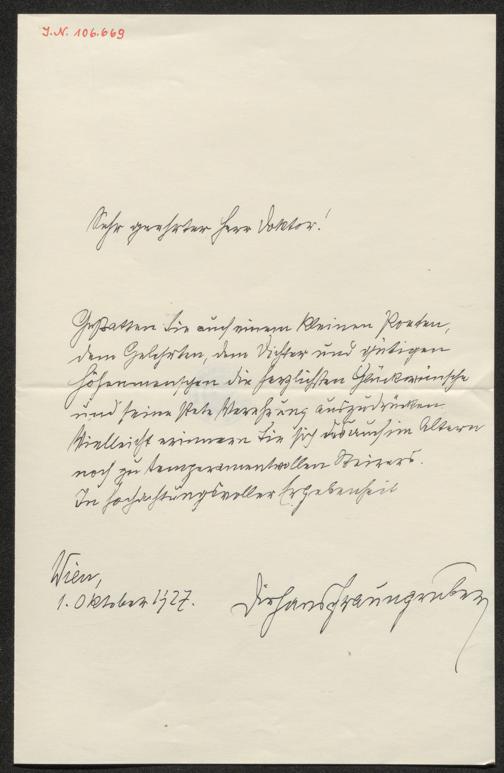 J.N. 106.669
Sehr geehrter Herr Doktor!
Gestatten Sie auch einem kleinen Poeten,
dem Gelehrten, dem Dichter und gütigen
Höhenmenschen die herzlichsten Glückwünsche
und seine stete Verehrung auszudrücken.
Vielleicht erinnern Sie sich des auch im Altern
noch zu temperamentvollen Steirers.
In hochachtungsvoller Ergebenheit
Wien,
1. Oktober 1927.
Hans Fraungruber